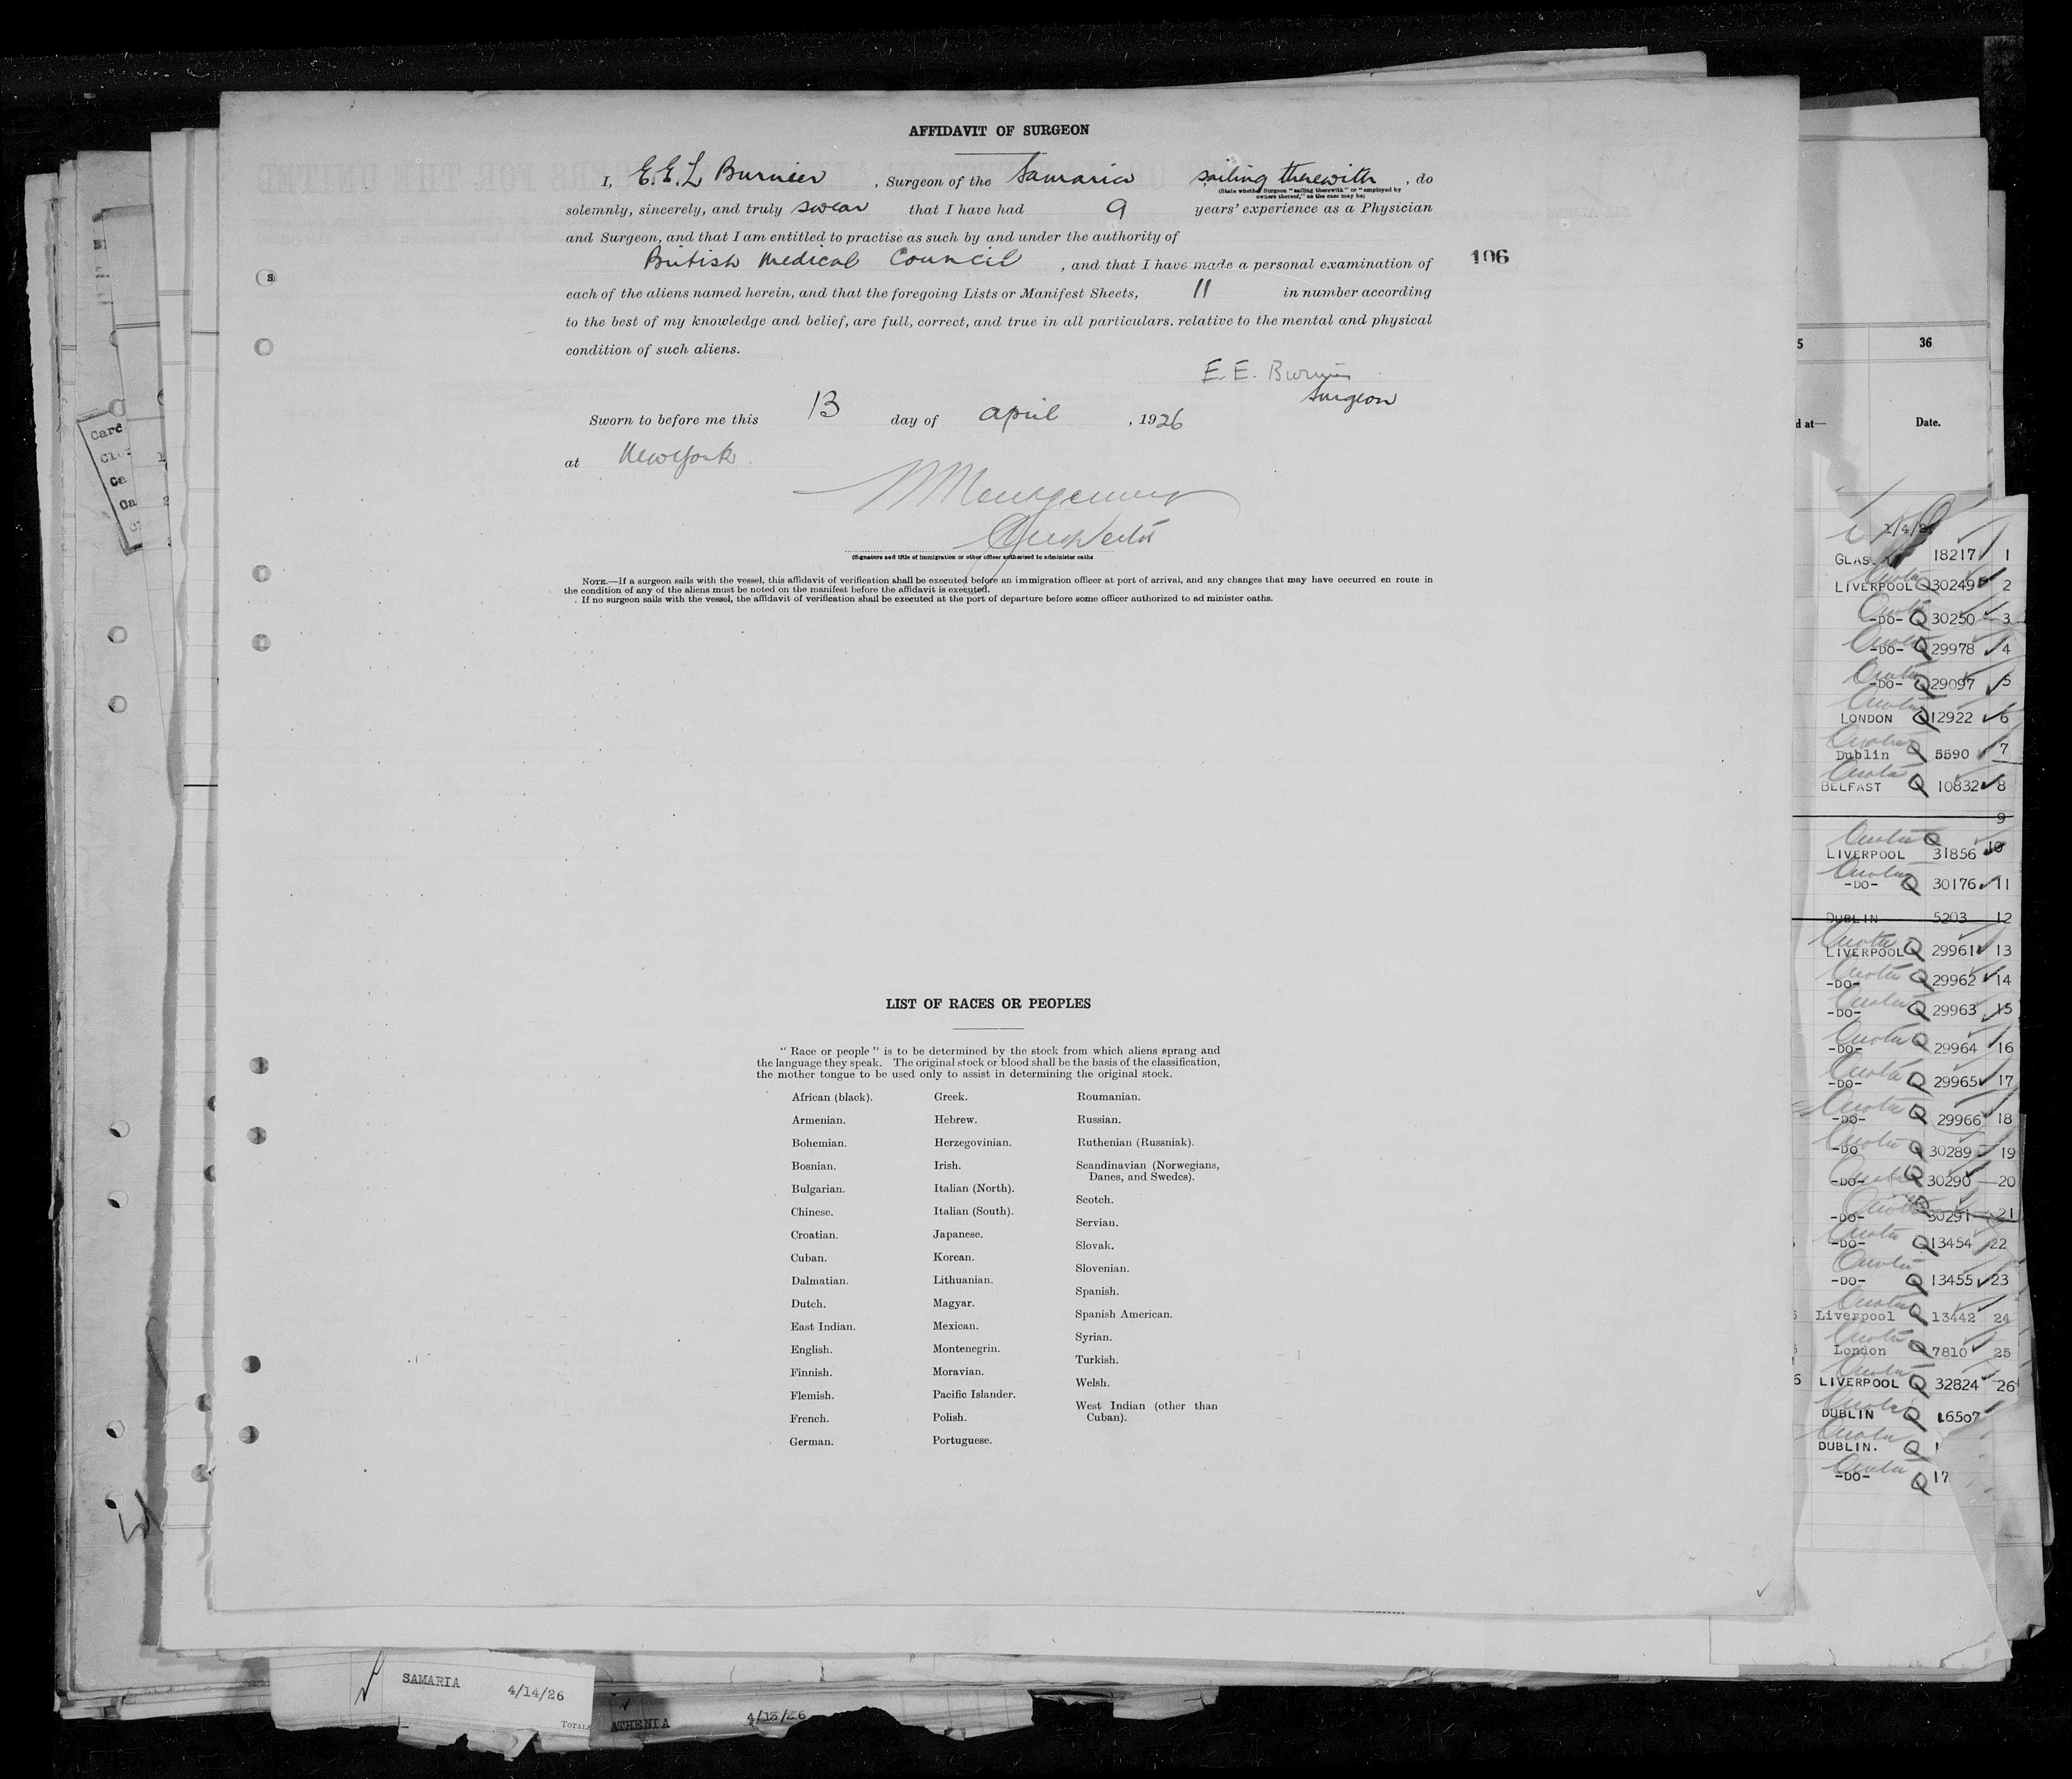 AFFIDAVIT OF SURGEON
I, E.E.L Burnier, Surgeon of the Samaria sailing therewith, do
(State whether Surgeon "sailing therewith" or "employed by
owners thereof," as the case may be)
solemnly, sincerely, and truly swear that I have had 9 years' experience as a Physician
and Surgeon, and that I am entitled to practise as such by and under the authority of
British Medical Council, and that I have made a personal examination of
106
each of the aliens named herein, and that the foregoing Lists or Manifest Sheets, 11 in number according
to the best of my knowledge and belief, are full, correct, and true in all particulars. relative to the mental and physical
condition of such aliens.
E. E.
Surgeon
Sworn to before me this 13 day of April, 1926
at New York.
(Signature and title of immigration or other officer authorised to administer oaths
NOTE.—If a surgeon sails with the vessel, this affidavit of verification shall be executed before an immigration officer at port of arrival, and any changes that may have occurred en route in
the condition of any of the aliens must be noted on the manifest before the affidavit is executed.
If no surgeon sails with the vessel, the affidavit of verification shall be executed at the port of departure before some officer authorized to ad minister oaths.
LIST OF RACES OR PEOPLES
"Race or people" is to be determined by the stock from which aliens sprang and
the language they speak. The original stock or blood shall be the basis of the classification,
the mother tongue to be used only to assist in determining the original stock.
African (black).
Armenian.
Bohemian.
Bosnian.
Bulgarian.
Chinese.
Croatian.
Cuban.
Dalmatian.
Dutch.
East Indian.
English.
Finnish.
Flemish.
French.
German.
Greek.
Hebrew.
Herzegovinian.
Irish.
Italian (North).
Italian (South).
Japanese.
Korean.
Lithuanian.
Magyar.
Mexican.
Montenegrin.
Moravian.
Pacific Islander.
Polish.
Portuguese.
Roumanian.
Russian.
Ruthenian (Russniak).
Scandinavian (Norwegians,
Danes, and Swedes).
Scotch.
Servian.
Slovak.
Slovenian.
Spanish.
Spanish American.
Syrian.
Turkish.
Welsh.
West Indian (other than
Cuban).
5 36
d at— Date.
18217 1
LIVERPOOL Q 30249 2
-DO- Q 30250 3
-DO- Q 29978 4
-DO- Q 29097 5
LONDON Q 12922 6
Dublin Q 5590 7
BELFAST Q 10832 8
9
LIVERPOOL Q 31856 10
-DO- Q 30176 11
DUBLIN 5203 12
LIVERPOOL Q 29961 13
-DO- Q 29962 14
-DO- Q 29963 15
-DO- Q 29964 16
-DO- Q 29965 17
-DO- Q 29966 18
-DO Q 30289 19
-DO- Q 30290 20
-DO- 30291 21
-DO- Q 13454 22
-DO- Q 13455 23
Liverpool Q 13442 24
London Q 7810 25
LIVERPOOL Q 32824 26
DUBLIN Q 16507
DUBLIN. Q 1
-DO- Q 17
Card
SAMARIA 4/14/26
TOTALS
ATHENIA 4/13/26